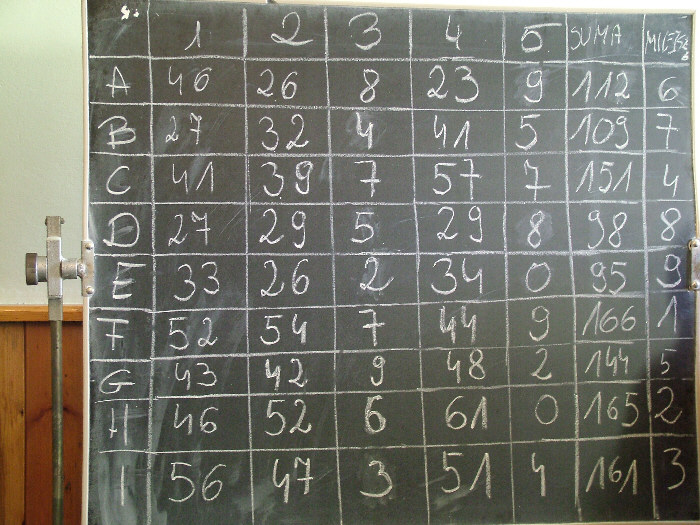 1 2 3 4 5 SUMA MIEJSC
A 46 26 8 23 9 112 6
B 27 32 4 41 5 109 7
C 41 39 7 57 7 151 4
D 27 29 5 29 8 98 8
E 33 26 2 34 0 95 9
F 52 54 7 44 9 166 1
G 43 42 9 48 2 144 5
H 46 52 6 61 0 165 2
I 56 47 3 51 4 161 3